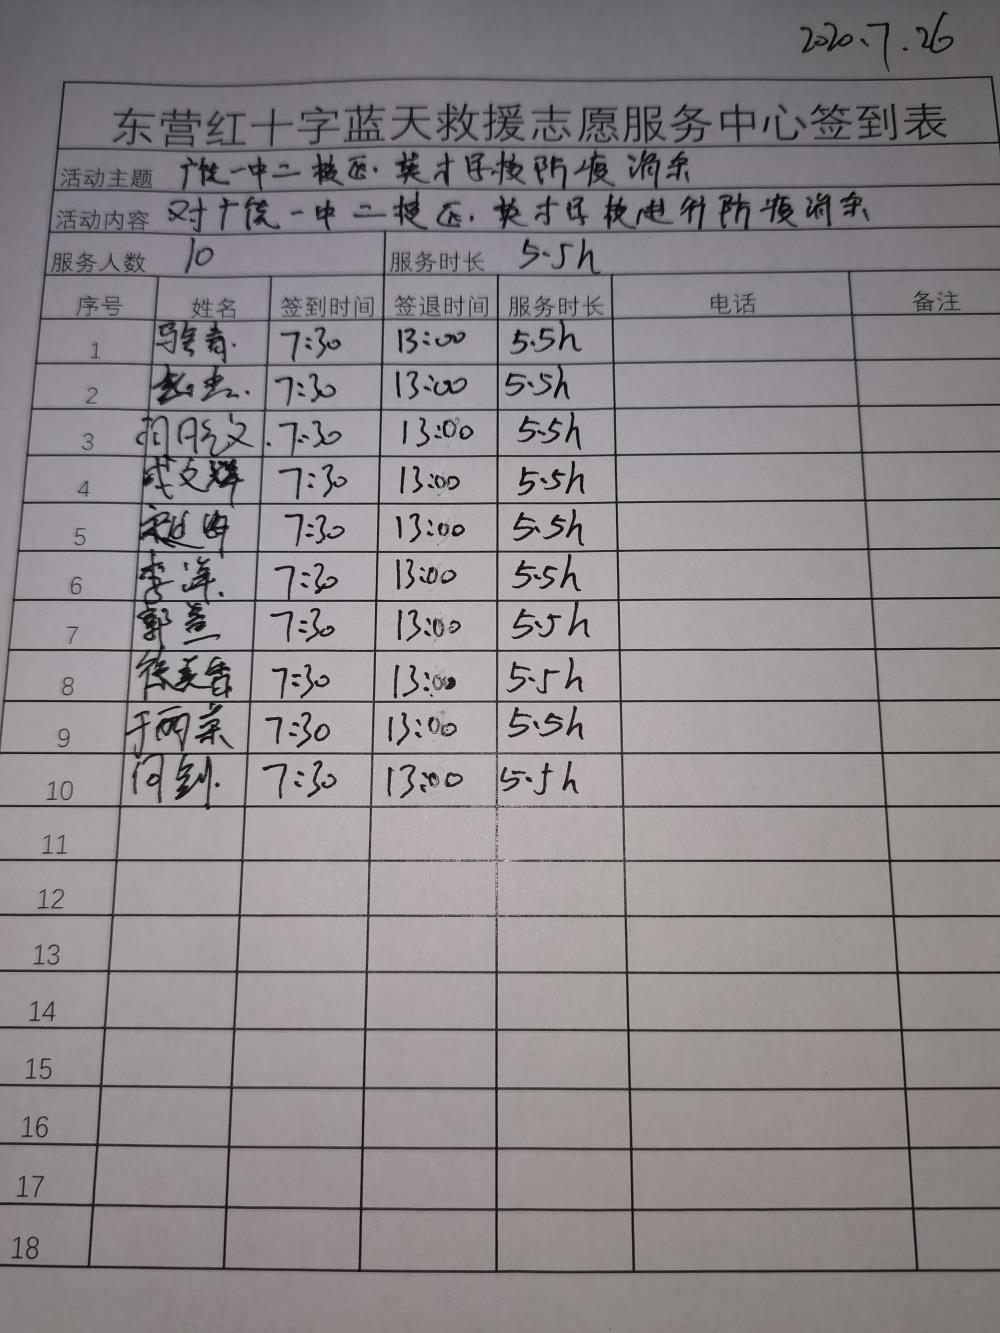 2020.7.26
东营红十字蓝天救援志愿服务中心签到表
活动主题 广饶一中二校区.英才学校防疫消杀
活动内容 对广饶一中二校区.英才学校进行防疫消杀
服务人数 10 服务时长 5.5h
序号 姓名 签到时间 签退时间 服务时长 电话 备注
1 7:30 13:00 5.5h
2 7:30 13:00 5.5h
3 7:30 13:00 5.5h
4 成文辉 7:30 13:00 5.5h
5 7:30 13:00 5.5h
6 李洋. 7:30 13:00 5.5h
7 郭 7:30 13:00 5.5h
8 徐美香 7:30 13:00 5.5h
9 于雨荣 7:30 13:00 5.5h
10 何 7:30 13:00 5.5h
11
12
13
14
15
16
17
18